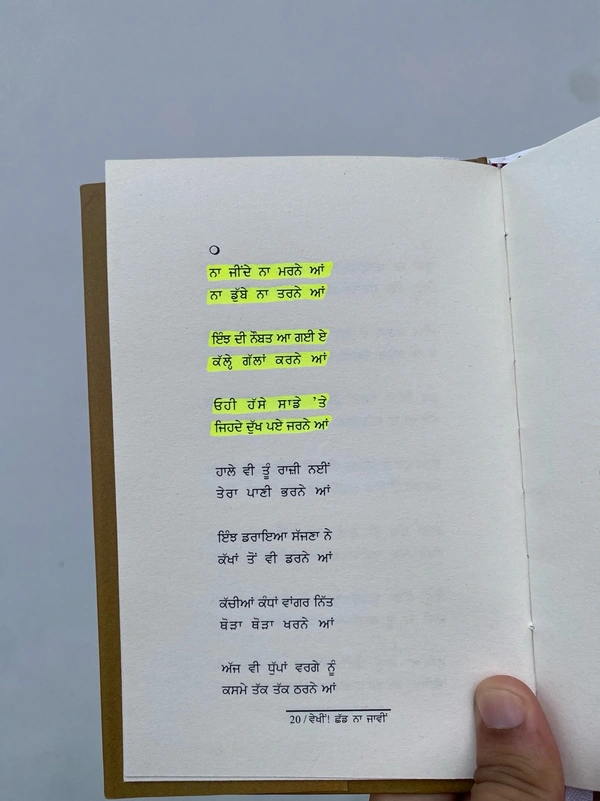 ਨਾ ਜੀਂਦੇ ਨਾ ਮਰਨੇ ਆਂ
ਨਾ ਡੁੱਬੇ ਨਾ ਤਰਨੇ ਆਂ
ਇੰਝ ਦੀ ਨੌਬਤ ਆ ਗਈ ਏ
ਕੱਲ੍ਹੇ ਗੱਲਾਂ ਕਰਨੇ ਆਂ
ਓਹੀ ਹੱਸੇ ਸਾਡੇ 'ਤੇ
ਜਿਹਦੇ ਦੁੱਖ ਪਏ ਜਰਨੇ ਆਂ
ਹਾਲੇ ਵੀ ਤੂੰ ਰਾਜ਼ੀ ਨਈਂ
ਤੇਰਾ ਪਾਣੀ ਭਰਨੇ ਆਂ
ਇੰਝ ਡਰਾਇਆ ਸੱਜਣਾ ਨੇ
ਕੱਖਾਂ ਤੋਂ ਵੀ ਡਰਨੇ ਆਂ
ਕੱਚੀਆਂ ਕੰਧਾਂ ਵਾਂਗਰ ਨਿੱਤ
ਥੋੜਾ ਥੋੜਾ ਖਰਨੇ ਆਂ
ਅੱਜ ਵੀ ਧੁੱਪਾਂ ਵਰਗੇ ਨੂੰ
ਕਸਮੇ ਤੱਕ ਤੱਕ ਠਰਨੇ ਆਂ
20 / ਵੇਖੀਂ! ਛੱਡ ਨਾ ਜਾਵੀਂ